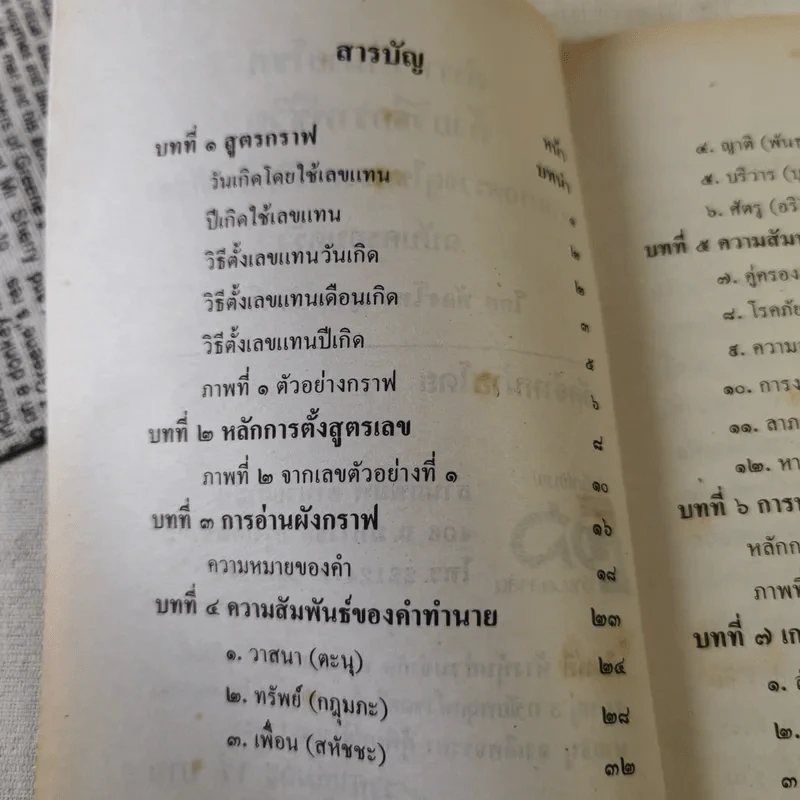 สารบัญ
หน้า
บทที่ ๑ สูตรกราฟ บทนำ
วันเกิดโดยใช้เลขแทน ๑
ปีเกิดใช้เลขแทน ๒
วิธีตั้งเลขแทนวันเกิด ๒
วิธีตั้งเลขแทนเดือนเกิด ๓
วิธีตั้งเลขแทนปีเกิด ๕
ภาพที่ ๑ ตัวอย่างกราฟ ๖
บทที่ ๒ หลักการตั้งสูตรเลข ๘
ภาพที่ ๒ จากเลขตัวอย่างที่ ๑ ๑๐
บทที่ ๓ การอ่านผังกราฟ ๑๖
ความหมายของคำ ๑๘
บทที่ ๔ ความสัมพันธ์ของคำทำนาย ๒๓
๑. วาสนา (ตะนุ) ๒๔
๒. ทรัพย์ (กฎุมภะ) ๒๘
๓. เพื่อน (สหัชชะ) ๓๒
๔. ญาติ (พันธ
๕. บริวาร (ปุ
๖. ศัตรู (อริ
บทที่ ๕ ความสัมพ
๗. คู่ครอง
๘. โรคภัย
๙. ความ
๑๐. การง
๑๑. ลาภ
๑๒. หา
บทที่ ๖ การ
หลักก
ภาพที่
บทที่ ๗ เก
๑.
๒.
๓